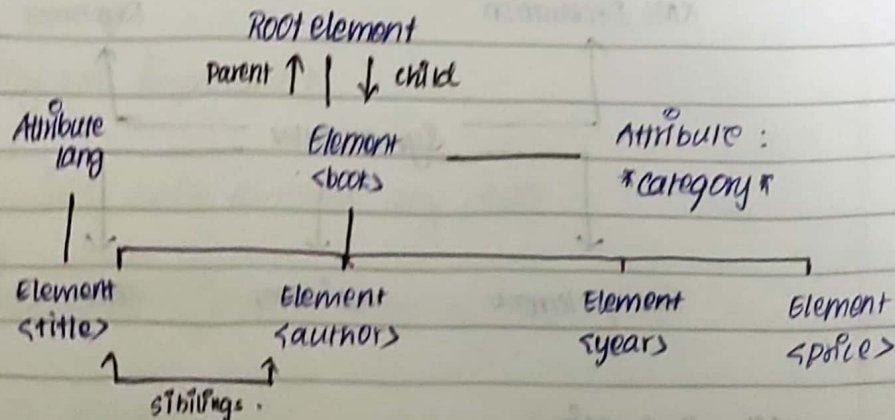 Root element
Parent ↑ | ↓ child
Attribute lang
Element <book>
Attribute : "category"
Element <title>
Element <author>
Element <year>
Element <price>
sibilings.